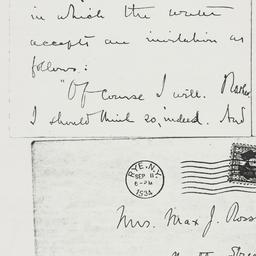 in which the writer
accepts an invitation as
follows:
"Of course I will. Rather
I should think so, indeed. And
RYE, N.Y.
SEP 11
6-PM
1934
Mrs. Max J. Ross